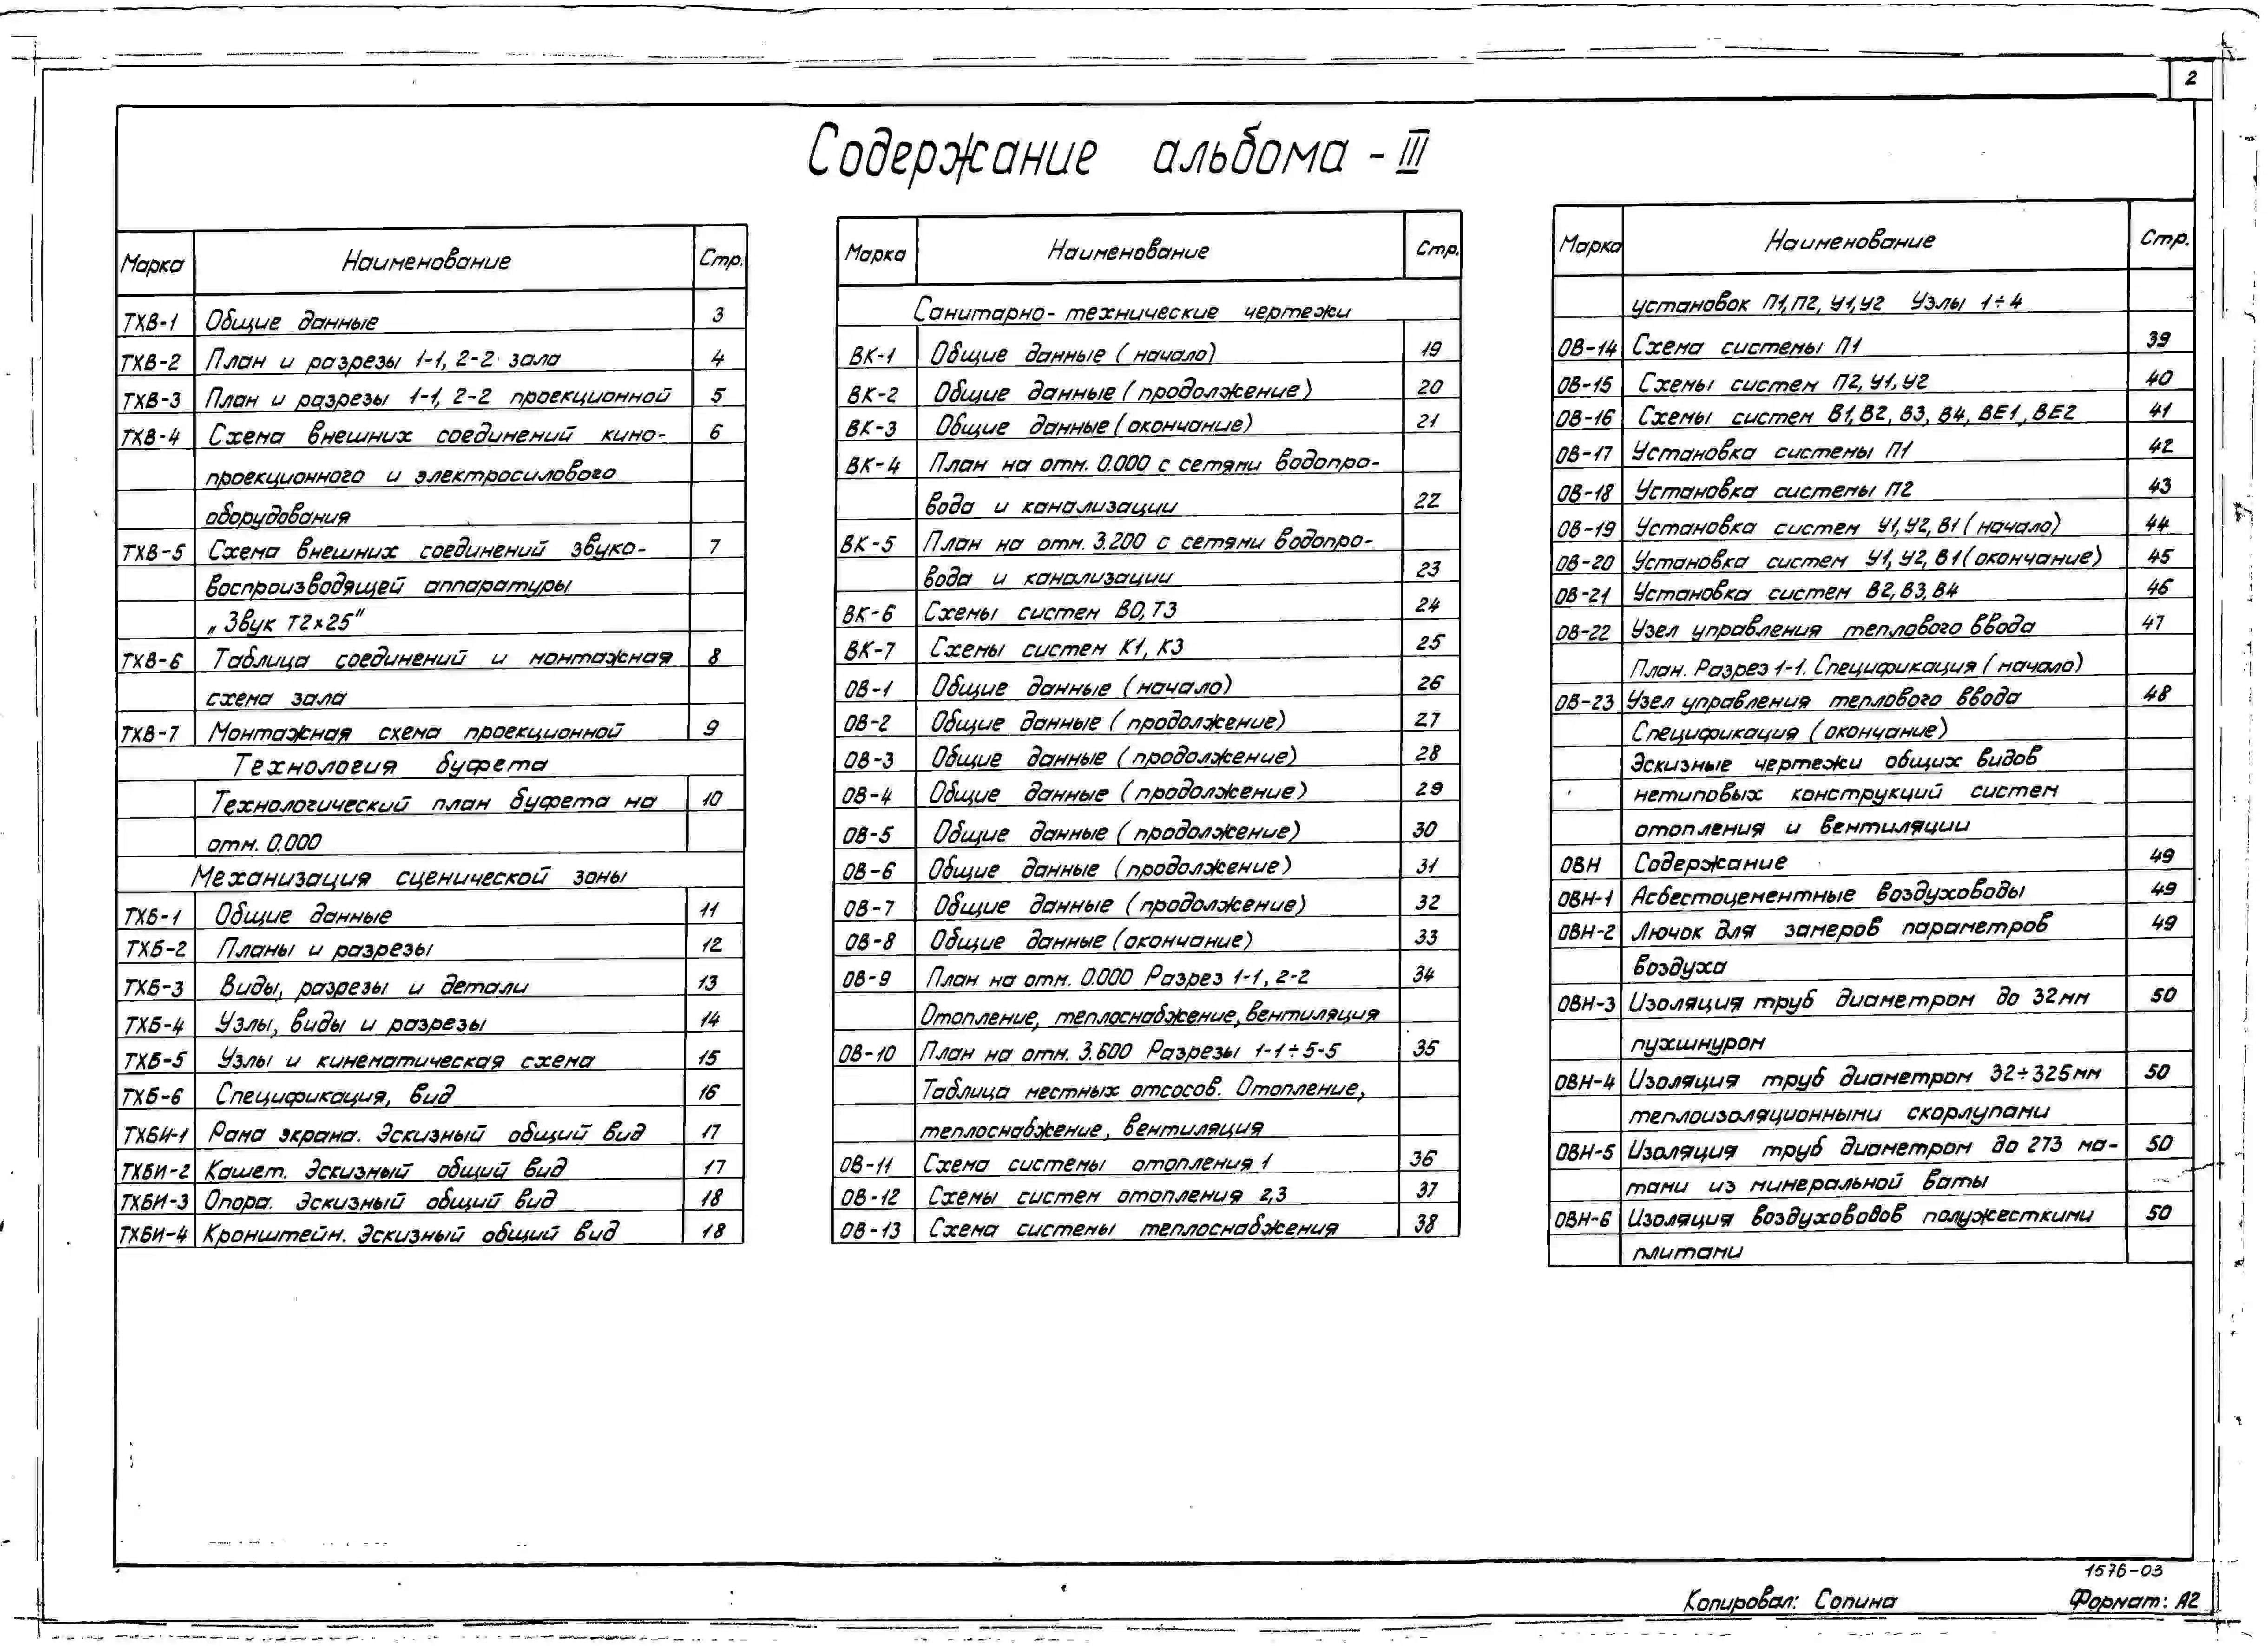 2
Содержание альбома - III
Марка Наименование Стр.
ТХВ-1 Общие данные 3
ТХВ-2 План и разрезы 1-1, 2-2 зала 4
ТХВ-3 План и разрезы 1-1, 2-2 проекционной 5
ТХВ-4 Схема внешних соединений кино- 6
проекционного и электросилового
оборудования
ТХВ-5 Схема внешних соединений звуко- 7
воспроизводящей аппаратуры
„Звук Т2х25"
ТХВ-6 Таблица соединений и монтажная 8
схема зала
ТХВ-7 Монтажная схема проекционной 9
Технология буфета
Технологический план буфета на 10
отм. 0.000
Механизация сценической зоны
ТХБ-1 Общие данные 11
ТХБ-2 Планы и разрезы 12
ТХБ-3 Виды, разрезы и детали 13
ТХБ-4 Узлы, виды и разрезы 14
ТХБ-5 Узлы и кинематическая схема 15
ТХБ-6 Спецификация, вид 16
ТХБИ-1 Рама экрана. Эскизный общий вид 17
ТХБИ-2 Кашет. Эскизный общий вид 17
ТХБИ-3 Опора. Эскизный общий вид 18
ТХБИ-4 Кронштейн. Эскизный общий вид 18
Марка Наименование Стр.
Санитарно-технические чертежи
ВК-1 Общие данные (начало) 19
ВК-2 Общие данные (продолжение) 20
ВК-3 Общие данные (окончание) 21
ВК-4 План на отм. 0.000 с сетями водопро-
вода и канализации 22
ВК-5 План на отм. 3.200 с сетями водопро-
вода и канализации 23
ВК-6 Схемы систем В0, Т3 24
ВК-7 Схемы систем К1, К3 25
ОВ-1 Общие данные (начало) 26
ОВ-2 Общие данные (продолжение) 27
ОВ-3 Общие данные (продолжение) 28
ОВ-4 Общие данные (продолжение) 29
ОВ-5 Общие данные (продолжение) 30
ОВ-6 Общие данные (продолжение) 31
ОВ-7 Общие данные (продолжение) 32
ОВ-8 Общие данные (окончание) 33
ОВ-9 План на отм. 0.000 Разрез 1-1, 2-2 34
Отопление, теплоснабжение, вентиляция
ОВ-10 План на отм. 3.600 Разрезы 1-1÷5-5 35
Таблица местных отсосов. Отопление,
теплоснабжение, вентиляция
ОВ-11 Схема системы отопления 1 36
ОВ-12 Схемы систем отопления 2,3 37
ОВ-13 Схема системы теплоснабжения 38
Марка Наименование Стр.
установок П1, П2, У1, У2 Узлы 1÷4
ОВ-14 Схема системы П1 39
ОВ-15 Схемы систем П2, У1, У2 40
ОВ-16 Схемы систем В1, В2, В3, В4, ВЕ1, ВЕ2 41
ОВ-17 Установка системы П1 42
ОВ-18 Установка системы П2 43
ОВ-19 Установка систем У1, У2, В1 (начало) 44
ОВ-20 Установка систем У1, У2, В1 (окончание) 45
ОВ-21 Установка систем В2, В3, В4 46
ОВ-22 Узел управления теплового ввода 47
План. Разрез 1-1. Спецификация (начало)
ОВ-23 Узел управления теплового ввода 48
Спецификация (окончание)
Эскизные чертежи общих видов
нетиповых конструкций систем
отопления и вентиляции
ОВН Содержание 49
ОВН-1 Асбестоцементные воздуховоды 49
ОВН-2 Лючок для замеров параметров 49
воздуха
ОВН-3 Изоляция труб диаметром до 32мм 50
пухшнуром
ОВН-4 Изоляция труб диаметром 32÷325мм 50
теплоизоляционными скорлупами
ОВН-5 Изоляция труб диаметром до 273 ма- 50
тами из минеральной ваты
ОВН-6 Изоляция воздуховодов полужесткими 50
плитами
1576-03
Копировал: Сопина Формат: А2